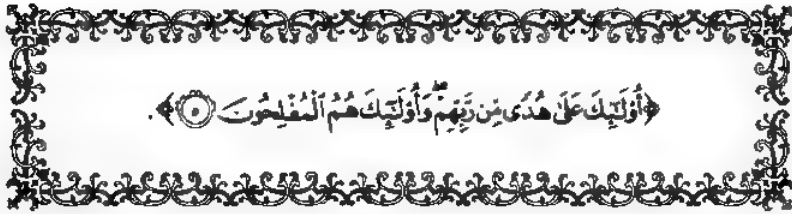 ﴿أُوْلَٰٓئِكَ عَلَىٰ هُدًى مِّن رَّبِّهِمْۖ وَأُوْلَٰٓئِكَ هُمُ ٱلْمُفْلِحُونَ ۝٥﴾.